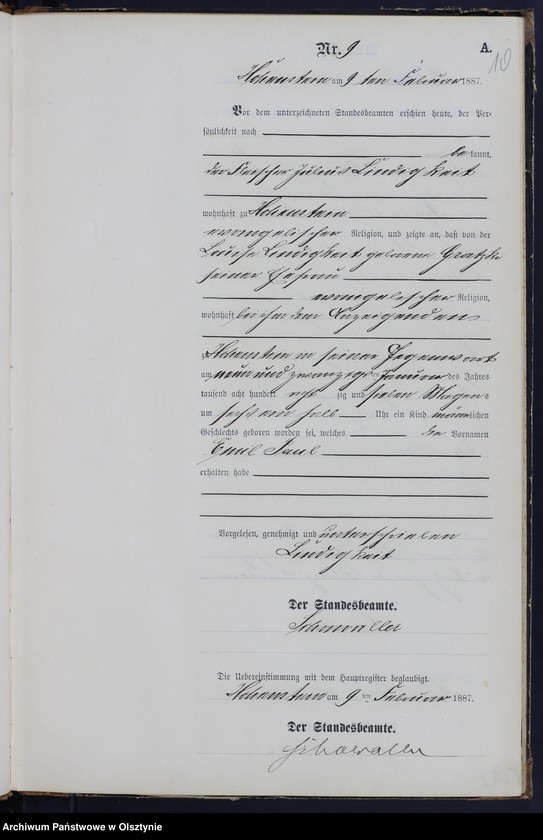 Nr. 9
A.
10
Hohenstein am 9 ten Februar 1887.
Vor dem unterzeichneten Standesbeamten erschien heute, der Per-
sönlichkeit nach
be kannt,
der Fleischer Julius Lindigkeit
wohnhaft zu Hohenstein
evangelischer Religion, und zeigte an, daß von der
Louise Lindigkeit geborene Gratzki
seiner Ehefrau
evangelischer Religion,
wohnhaft bei ihm dem Anzeigenden
zu Hohenstein in seiner Gegenwart
am neun und zwanzigsten Januar des Jahres
tausend acht hundert acht zig und sieben Morgens
um sechs ein halb Uhr ein Kind männlichen
Geschlechts geboren worden sei, welches den Vornamen
Emil Paul
erhalten habe
Vorgelesen, genehmigt und unterschrieben
Lindigkeit
Der Standesbeamte.
Die Uebereinstimmung mit dem Hauptregister beglaubigt.
Hohenstein am 9 ten Februar 1887.
Der Standesbeamte.
Archiwum Państwowe w Olsztynie